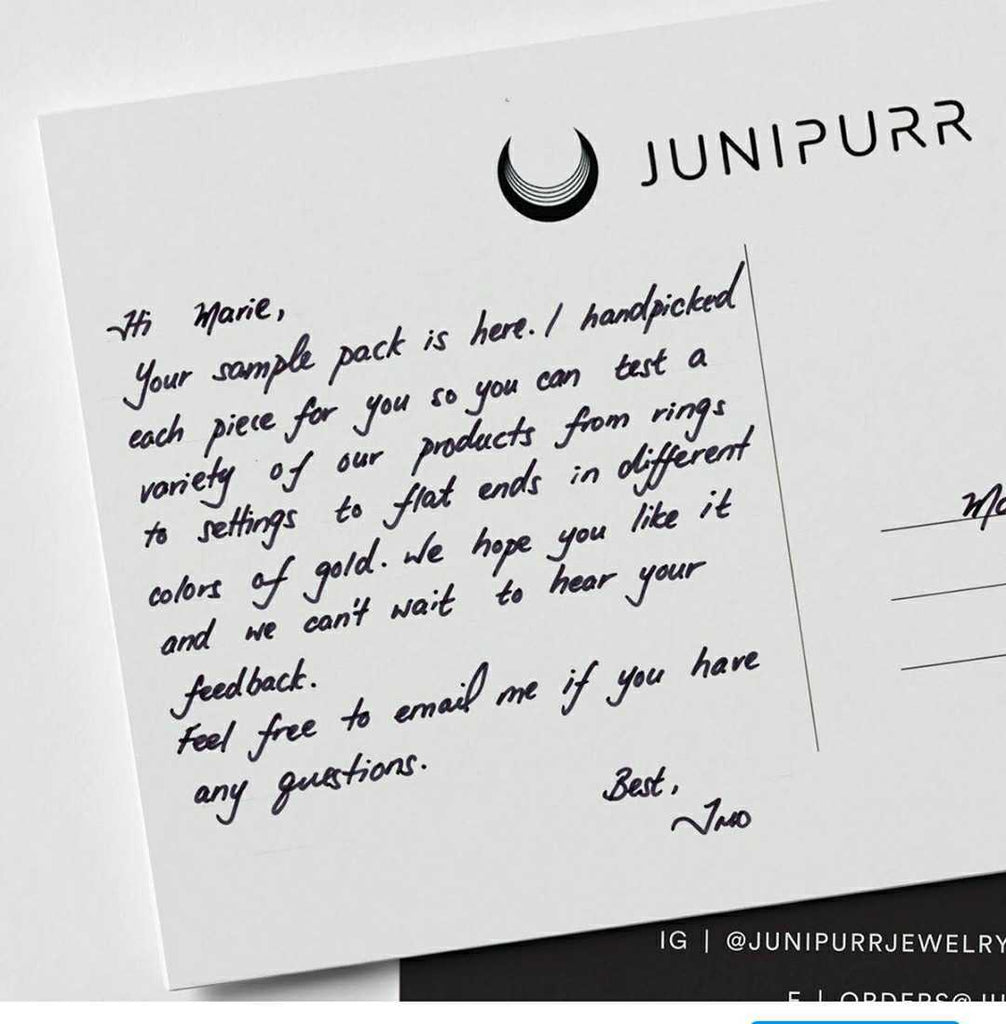 JUNIPURR
Hi Marie,
Your sample pack is here. I handpicked
each piece for you so you can test a
variety of our products from rings
to settings to flat ends in different
colors of gold. We hope you like it
and we can't wait to hear your
feedback.
Feel free to email me if you have
any questions.
Best,
IG | @JUNIPURRJEWELRY